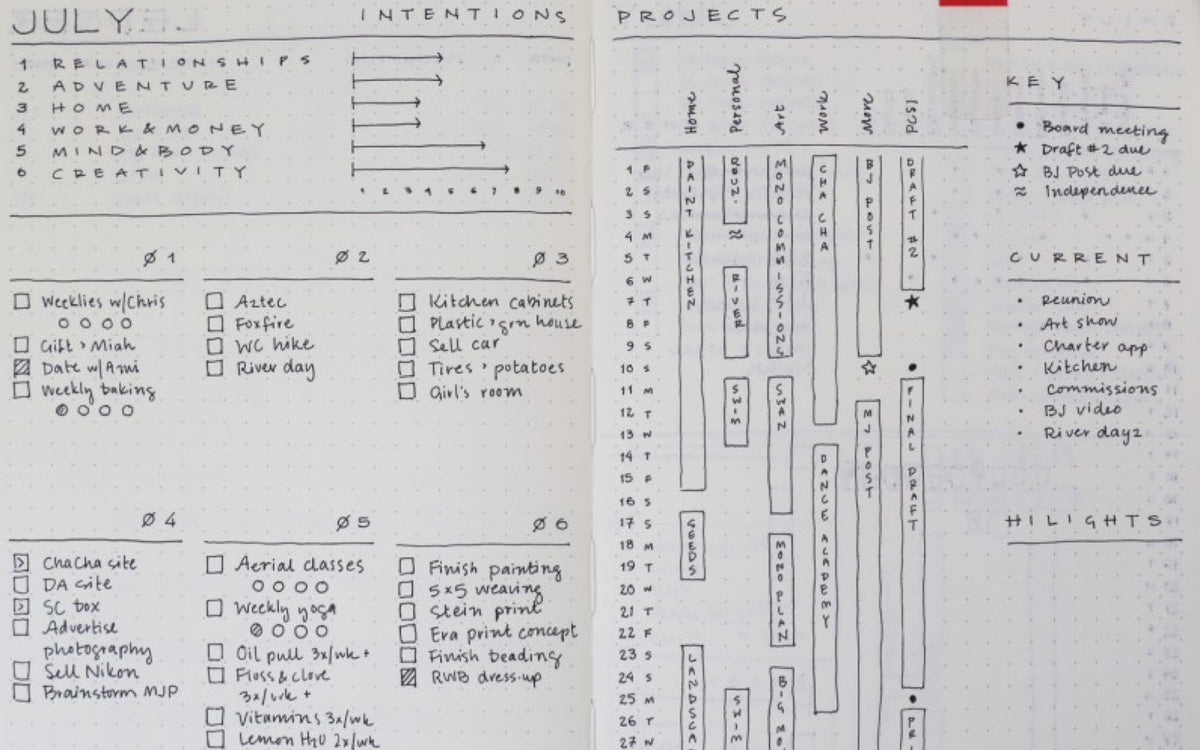 JULY.
INTENTIONS
1 RELATIONSHIPS
2 ADVENTURE
3 HOME
4 WORK & MONEY
5 MIND & BODY
6 CREATIVITY
1 2 3 4 5 6 7 8 9 10
Ø 1
Weeklies w/Chris
Gift > Miah
Date w/Ami
Weekly baking
Ø 2
Aztec
Foxfire
WC hike
River day
Ø 3
Kitchen cabinets
Plastic > grn house
Sell car
Tires > potatoes
Girl's room
Ø 4
ChaCha site
DA site
SC box
Advertise
photography
Sell Nikon
Brainstorm MJP
Ø 5
Aerial classes
Weekly yoga
Oil pull 3x/wk +
Floss & clove
3x/wk +
Vitamins 3x/wk
Lemon H2O 2x/wk
Ø 6
Finish painting
5x5 weaving
Stein print
Era print concept
Finish beading
RWB dress-up
PROJECTS
Home
Personal
Art
Work
More
PCSI
1 F
2 S
3 S
4 M
5 T
6 W
7 T
8 F
9 S
10 S
11 M
12 T
13 W
14 T
15 F
16 S
17 S
18 M
19 T
20 W
21 T
22 F
23 S
24 S
25 M
26 T
27 W
PAINT KITCHEN
SEEDS
LANDSCA
REUN.
RIVER
SWIM
SWIM
MONO COMMISSIONS
SWAN
MONO PLAN
BIG MO
CHA CHA
DANCE ACADEMY
BJ POST
MJ POST
DRAFT #2
FINAL DRAFT
PRI
KEY
• Board meeting
★ Draft #2 due
☆ BJ Post due
≈ Independence
CURRENT
· Reunion
· Art show
· Charter app
· Kitchen
· Commissions
· BJ video
· River day2
HILIGHTS